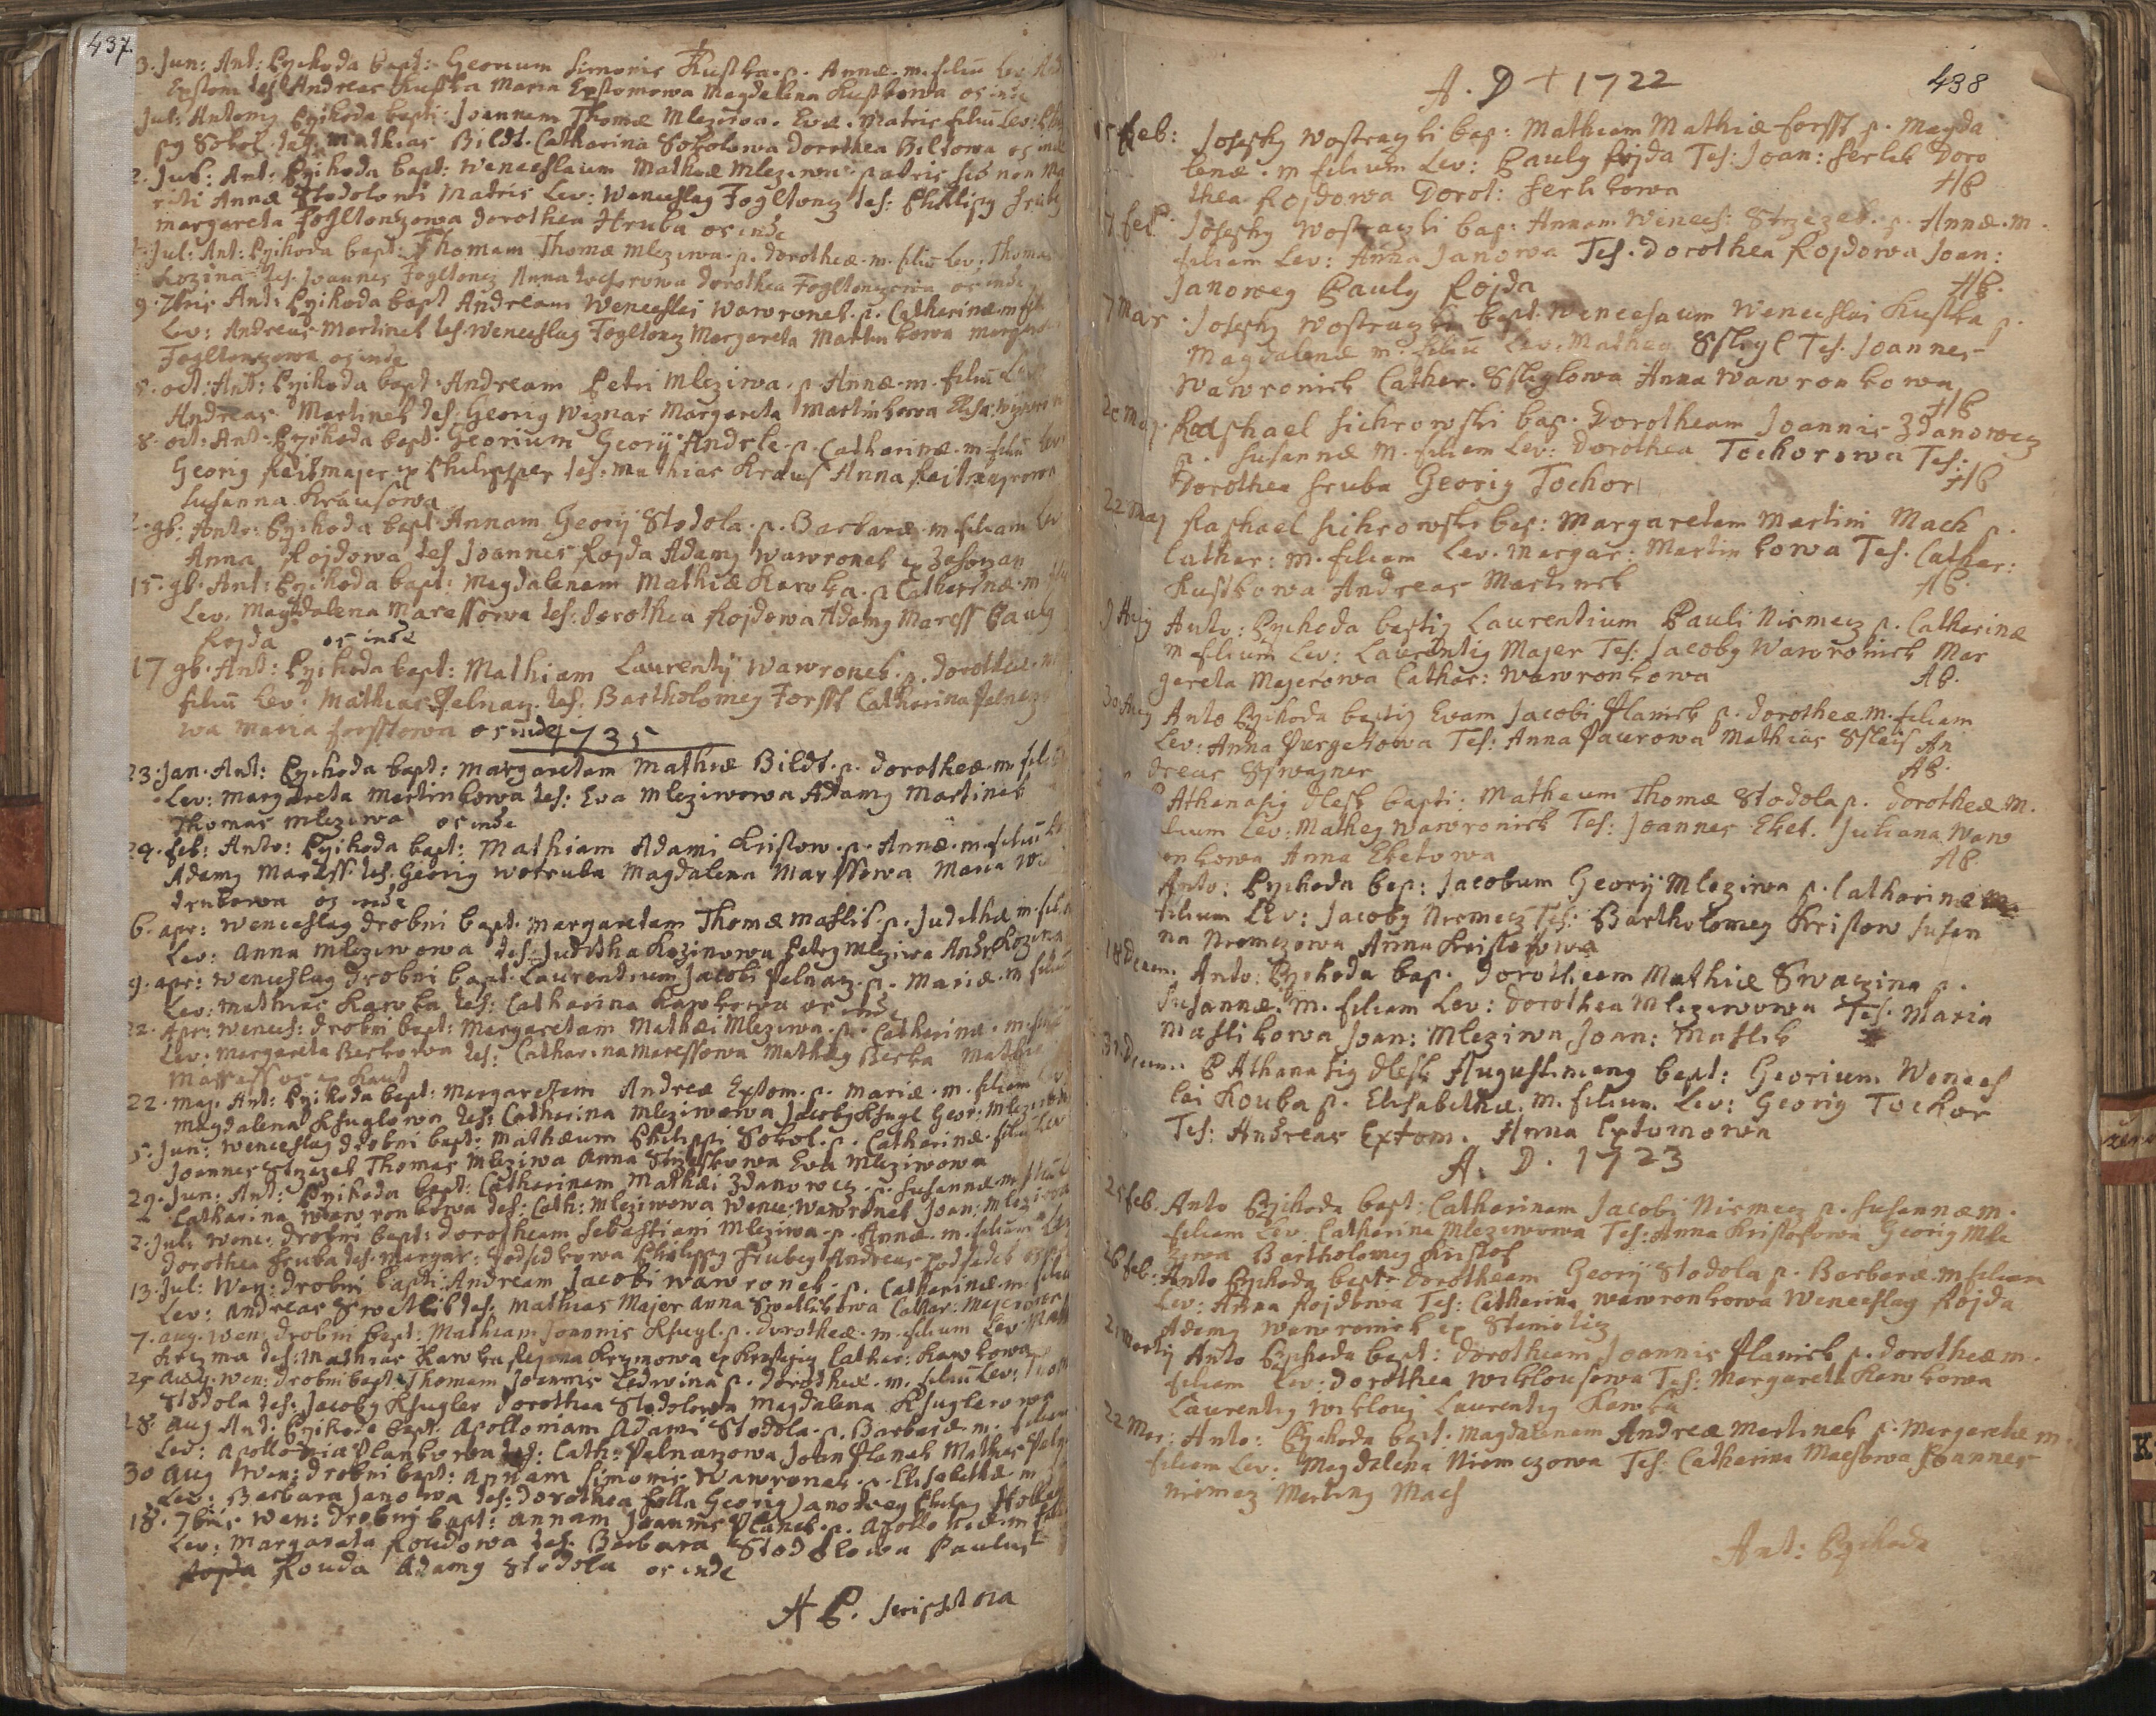 437.
3. Jun: Ant: Pychoda bapt: Georium Simonis Kustka. p. Annæ. m. filiū Lev.
Exstom tes: Andreas Kustka Maria Exstomowa Magdalena Kustkowa os inde
Jul: Antong Pychoda bapti: Joannem Thomæ Mleziwa. Evæ. Matris filiū Lev:
pg Sokol. tes: Mathias Bildt. Catharina Sokolowa Dorothea Biltowa os inde
2. Jul: Ant: Pychoda bapt: Wenceslaum Mathæi Mleziwa patris sed non
riti Annæ Stodolowi Matris Lev: Wenceslag Fogltonz tes: Philipg
Margareta Fogltonzowa Dorothea Hruba os inde
Jul: Ant: Pychoda bapt: Thomam Thomæ Mleziwa. p. Dorotheæ. m. filiū Lev: Thomas
Kozina tes. Joannes Fogltonz Anna Dorothea Fogltonzowa os inde
9. 7bris Ant: Pychoda bapt Andream Wenceslai Wawronek. p. Catharinæ. m.
Lev: Andreas Martinek tes. Wenceslag Fogltonz Margareta Martinkowa
Fogltonzowa os inde
8. oct: Ant: Pychoda bapt: Andream Petri Mleziwa. p. Annæ. m. filiū
Andreas Martinek tes: Georig Weznar Margareta Martinkowa
8. oct: Ant: Pychoda bapt: Georium Georÿ Andrle. p. Catharinæ. m. filiū Lev
Georig Reitmajer ex tes: Mathias Kraus Anna Reitmajrowa
Susanna Krausowa
2. 9b: Anto: Pychoda bapt: Annam Georÿ Stodola. p. Barbaræ. m. filiam
Anna Rojdowa tes Joannes Rojda Adamg Wawronek ex
15. 9b. Ant: Pychoda bapt: Magdalenam Mathiæ Kawka. p. Catharinæ. m
Lev. Magdalena Maressowa tes: Dorothea Rojdowa Adamg Maress Paulg
Rojda os inde
17 9b. Ant: Pychoda bapt: Mathiam Laurentÿ Wawronek. p. Dorotheæ. m
filiū Lev: Mathias Pelnarz. tes: Bartholomeg Forsst Catharina
wa Maria Forsstowa os inde
1735
23. Jan. Ant: Pychoda bapt: Margaretam Mathiæ Bildt. p. Dorotheæ. m.
Lev: Margareta Martinkowa tes: Eva Mleziwowa Adamg Martinek
Thomas Mleziwa os inde
24. Feb: Anto: Pychoda bapt: Mathiam Adami Kristow. p. Annæ. m. filiū
Adamg Maress. tes. Georig Wotruba Magdalena Maressowa Maria
trubowa os inde
6. apr: Wenceslag Drobni bapt. Margaretam Thomæ Maslik. p. Judithæ. m.
Lev: Anna Mleziwowa tes: Juditha Kozinowa Petrg Mleziwa Andr: Kozina
9. apr: Wenceslag Drobni bapt. Laurentium Jacobi Pelnarz. p. Mariæ. m filiū
Lev: Mathias Kawka tes: Catharina Kawkowa os inde
22. Apr: Wences: Drobni bapt: Margaretam Mathæi Mleziwa. p. Catharinæ. m.
Lev: Margareta Berkowa tes: Catharina Maressowa Matheg Berka
22. Maj. Ant: Pychoda bapt: Margaretam Andreæ Extom. p. Mariæ. m. filiam
Magdalena Kfuglowa tes: Catharina Mleziwowa Jacobg Kfugl Geor: Mleziwa
5. Jun: Wenceslag Drobni bapt: Mathæum Philippi Sokol. p. Catharinæ. filiū Lev
Joannes Strzezek Thomas Mleziwa Anna Eva Mleziwowa
29. Jun: Ant: Pychoda bapt: Catharinam Mathæi Zdanowecz. p. Susannæ. m.
Catharina Wawronkowa tes: Cath: Mleziwowa Wence: Wawronek Joan: Mleziwa
2. Jul: Wenc: Drobni bapt: Dorotheam Sebastiani Mleziwa. p. Annæ. m. filiam
Dorothea Hruba tes. Margar: Podsedkowa Philippg Hrubeg Andreas Podsedek
13. Jul: Wen: Drobni bapti: Andream Jacobi Wawronek. p. Catharinæ. m. filiū
Lev: Andreas Swetlik tes: Mathias Majer Anna Swetlikowa Cathar:
7. aug. Wen: Drobni bapt: Mathiam Joannis Kfugl. p. Dorotheæ. m. filium Lev:
Krizma tes: Mathias Kawka Regina ex Cathar: Kawkowa
24 aug. Wen: Drobni bapt: Thomam Joannis Ledwina p. Dorotheæ. m. filiū Lev:
Stodola tes: Jacobg Kfugler Dorothea Stodolowa Magdalena Kfuglerowa
28. aug Ant: Pychoda bapt: Apolloniam Adami Stodola. p. Barbaræ. m. filiam
Lev: Apollonia Plankowa tes: Cath: Pelnarzowa Joan Planek Mathias
30 aug Wen: Drobni bapt: Annam Simonis Wawronek. p. Elisabethæ. m
Lev: Barbara Janowa tes: Dorothea Holla Georig Janoweg Philip
18. 7bris Wen: Drobni bapt: Annam Joannis Planek. p. Apolloniæ. m
Lev: Margareta Roudowa tes: Barbara Stodolowa Paulus
Rojda Rouda Adamg Stodola os inde
A P. scripst ma
438
A. D + 1722
15 Feb: Josephg Wostraczki bap: Mathiam Mathiæ Forsst p. Magda
lenæ. m filium Lev: Paulg Rojda Tes: Joan: Serlek Doro
thea Rojdowa Dorot: Serlikowa AP
7 Feb. Josephg Wostraczki bap: Annam Wences: Strzezek. p. Annæ. m.
filiam Lev: Anna Janowa Tes. Dorothea Rojdowa Joan:
Janoweg Paulg Rojda AP.
7 Mar. Josephg Wostraczki bapt. Wencesaum Wenceslai Kustka p.
Magdalenæ m. filiū Lev. Matheg Tes. Joannes
Wawronick Cather. Anna Wawronkowa AP
20 Maj. Raphael Sichrowski bap. Dorotheam Joannis Zdanowecz
p. Susannæ m. filiam Lev: Dorothea Tochorowa Tes:
Dorothea Hruba Georig Tochor AP
22 Maj Raphael Sichrowski bap: Margaretam Martini Mach p.
Cather: m. filiam Lev. Margar: Martinkowa Tes. Cather:
Kustkowa Andreas Martinek AP.
9 Aug Anto: Pychoda baptig Laurentium Pauli Niemecz p. Catharinæ
m filium Lev: Laurentig Majer Tes: Jacobg Wawronick Mar
gareta Majerowa Cathar: Wawronkowa AP.
30 Aug Anto Pychoda baptig Evam Jacobi Planick p. Dorotheæ. m. filiam
Lev: Anna Tes: Anna Mathias An
dreas AP.
P Athanasig Dlesk bapti: Mathæum Thomæ Stodola p. Dorotheæ. m.
lium Lev: Matheg Wawronick Tes: Joannes Eket. Juliana Waw
onkowa Anna Eketowa AP
Anto: Pychoda bap: Jacobum Georÿ Mleziwa p. Catharinæ m.
filium Lev: Jacobg Niemecz Tes: Bartholomeg Kristow Susan
na Niemczowa Anna Kristowwa
18 Decem. Anto: Pychoda bap. Dorotheam Mathiæ Swaczina p.
Susannæ. m. filiam Lev: Dorothea Mleziwowa Tes. Maria
Maslikowa Joan: Mleziwa Joan: Maslik
31. Decem. P Athanasig Dlesk Augustineng bapt: Georium Wences
lai Kouba p. Elisabethæ. m. filium Lev: Georig Tochor
Tes: Andreas Extom. Anna Extomowa
A. D. 1723
25 Feb. Anto Pychoda bapt: Catharinam Jacobi Niemecz p. Susannæ m.
filiam Lev. Catharina Mleziwowa Tes: Anna Kristofowa Georig Mle
ziwa Bartholomeg Kristof
26 Feb: Anto Pychoda bapt: Dorotheam Georÿ Stodola p. Barbaræ. m filiam
Lev: Anna Rojdowa Tes: Catharina Wawronkowa Wenceslag Rojda
Adamg Wawronick ex
21 Martij Anto Pychoda bapt: Dorotheam Joannis Planick p. Dorotheæ m.
filiam Lev: Dorothea Wiklousowa Tes: Margareta Kawkowa
Laurentig Wiklouj Laurentig Kawka
22 Mar: Anto: Pychoda bapt. Magdalenam Andreæ Martinek p. Margaretæ m.
filiam Lev: Magdalena Niemczowa Tes: Catharina Joannes
Niemecz Marting
Ant: Pychoda